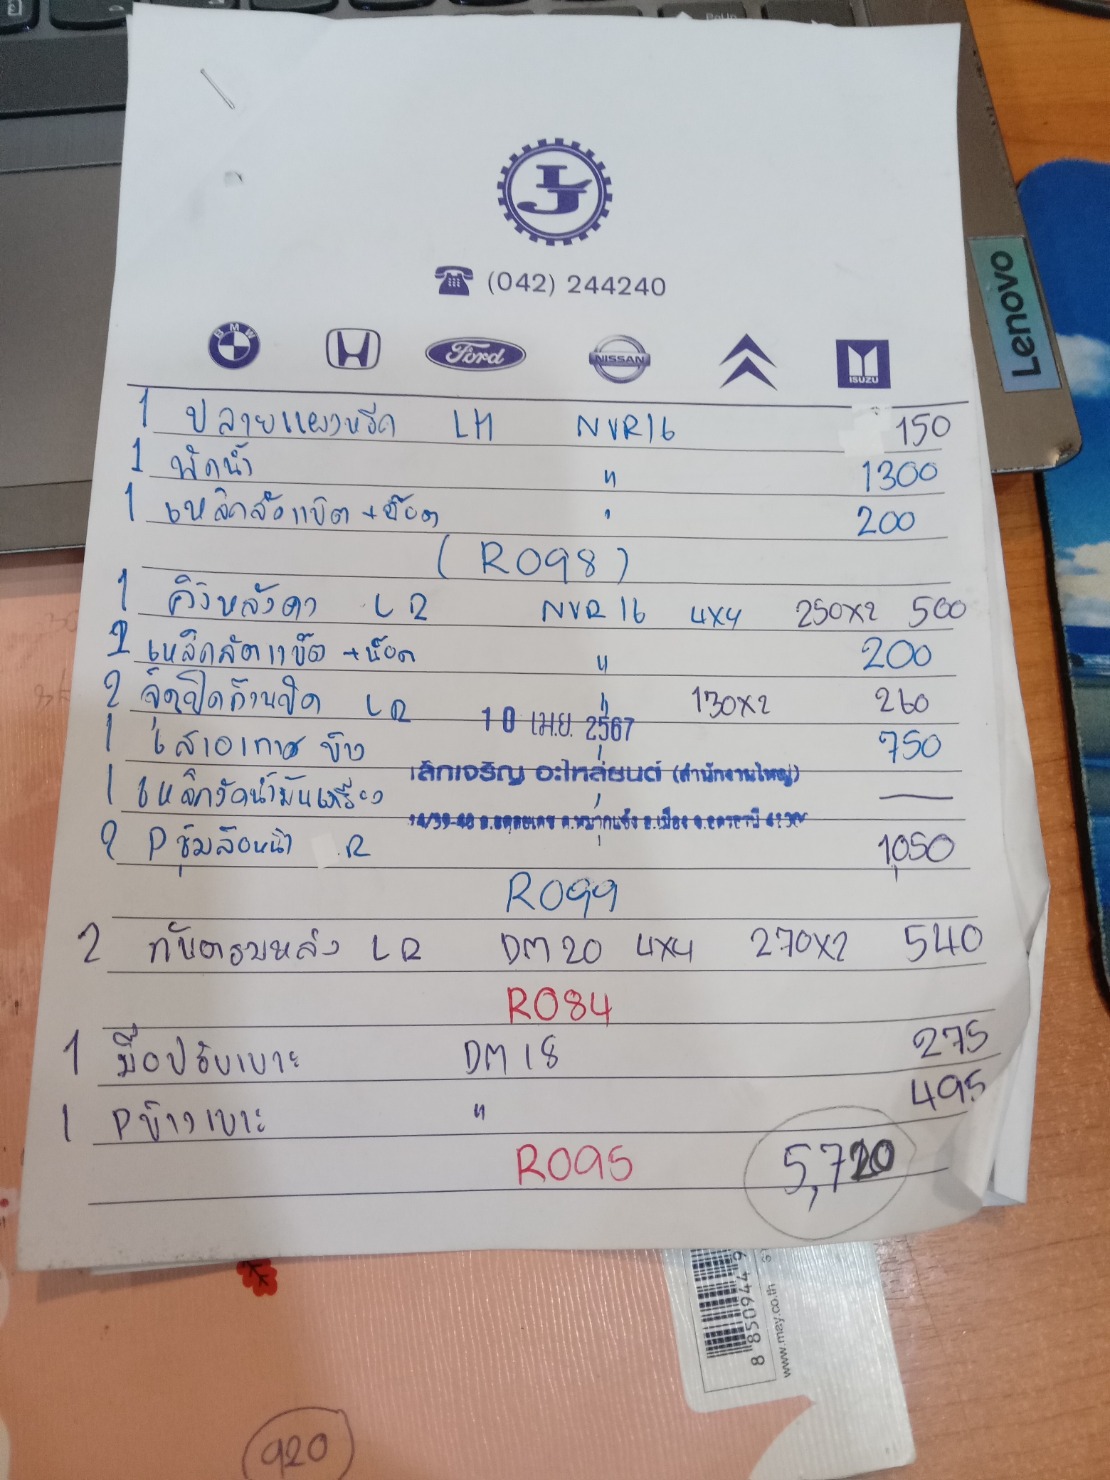 PgUp
Lenovo
LJ
(042) 244240
BMW Ford NISSAN ISUZU
1 ปลายแผงหรีด LH NVR16 150
1 พัดน้ำ " 1300
1 เหล็กล้อแข็ต + น็อต " 200
(R098)
1 คิ้วหลังคา LR NVR16 4X4 250X2 500
2 เหล็กลัดแข็ต + น็อต " 200
2 LR " 130X2 260
10 เม.ย. 2567
1 ข้าง " 750
เลิกเจริญ อะไหล่ยนต์ (สำนักงานใหญ่)
1 เหล็กวัดน้ำมันเครื่อง " —
2 P ซุ้มล้อหน้า R 1,050
R099
2 กันตรมหลัง LR DM20 4X4 270X2 540
R084
1 มือปรับเบาะ DM18 275
1 Pข้างเบาะ " 495
R095 5,720
8 850944 9
www.may.co.th
920